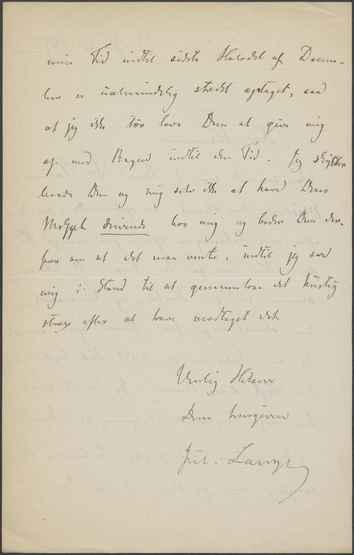 min Tid indtil sidste Halvdel af Decem-
ber er ualmindelig stærkt optaget, saa
at jeg ikke tør love Dem at give mig
af med Bogen indtil den Tid. Jeg
baade Dem og mig selv ikke at have Deres
hos mig og beder Dem der-
for om at det maa vente, indtil jeg
mig i Stand til at gennemlæse det hurtig
strax efter at have modtaget det
Venlig Hilsen
Deres hengivne
Jul. Lange